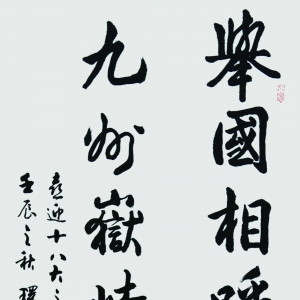 舉國相
九州嶽
喜迎十八大之
壬辰之秋